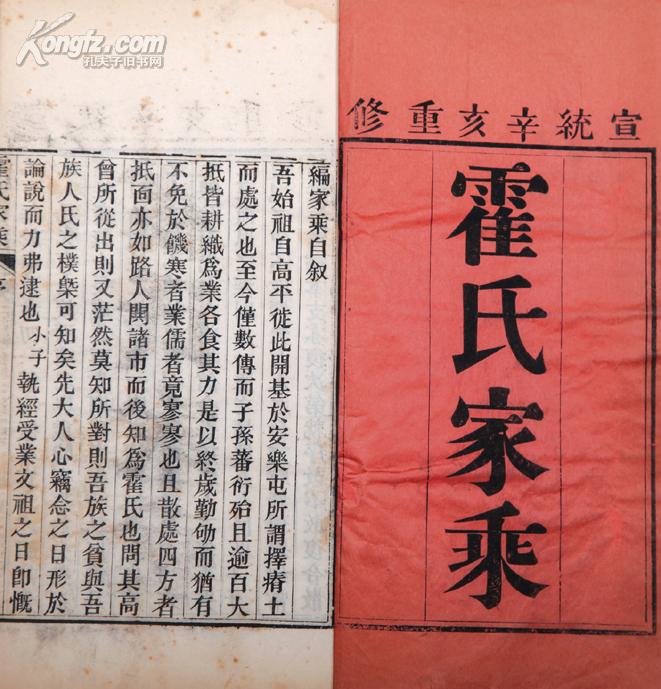 Kongfz.com
孔夫子旧书网
宣統辛亥重修
霍氏家乘
編家乘自叙
吾始祖自高平徙此開基於安樂屯所謂擇瘠土
而處之也至今僅數傳而子孫蕃衍殆且逾百大
抵皆耕織爲業各食其力是以終歲勤劬而猶有
不免於饑寒者業儒者竟寥寥也且散處四方者
抵面亦如路人閧諸市而後知爲霍氏也問其高
曾所從出則又茫然莫知所對則吾族之貧與吾
族人氏之樸槩可知矣先大人心竊念之日形於
論說而力弗逮也小子執經受業文祖之日卽慨
霍氏家乘 序